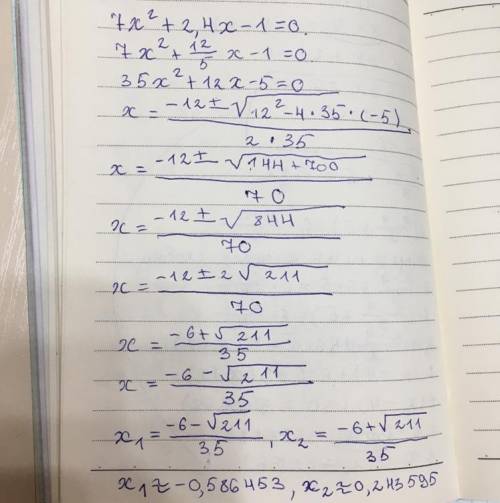 7x² + 2,4x - 1 = 0.
7x² + 12/5 x - 1 = 0.
35x² + 12x - 5 = 0
x = (-12 ± √(12² - 4 · 35 · (-5))) / (2 · 35)
x = (-12 ± √(144 + 700)) / 70
x = (-12 ± √844) / 70
x = (-12 ± 2√211) / 70
x = (-6 + √211) / 35
x = (-6 - √211) / 35
x₁ = (-6 - √211) / 35, x₂ = (-6 + √211) / 35
x₁ ≈ -0,586453, x₂ ≈ 0,243595